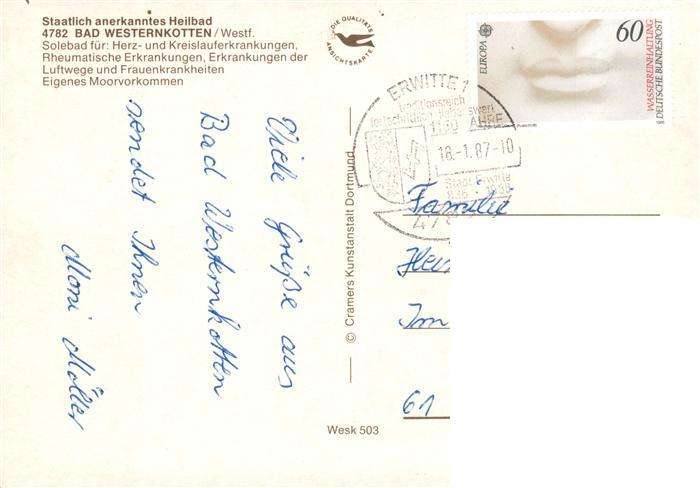 Staatlich anerkanntes Heilbad
4782 BAD WESTERNKOTTEN / Westf.
Solebad für: Herz- und Kreislauferkrankungen,
Rheumatische Erkrankungen, Erkrankungen der
Luftwege und Frauenkrankheiten
Eigenes Moorvorkommen
DIE QUALITÄTS
ANSICHTSKARTE
Viele Grüße aus
Bad Westernkotten
sendet Ihnen
Moni Möller
© Cramers Kunstanstalt Dortmund
Wesk 503
EUROPA
60
WASSERREINHALTUNG
DEUTSCHE BUNDESPOST
ERWITTE 1
1150 JAHRE
18.-1.87-10
Stadt Erwitte
836 - 1986
478
Familie
Im
61